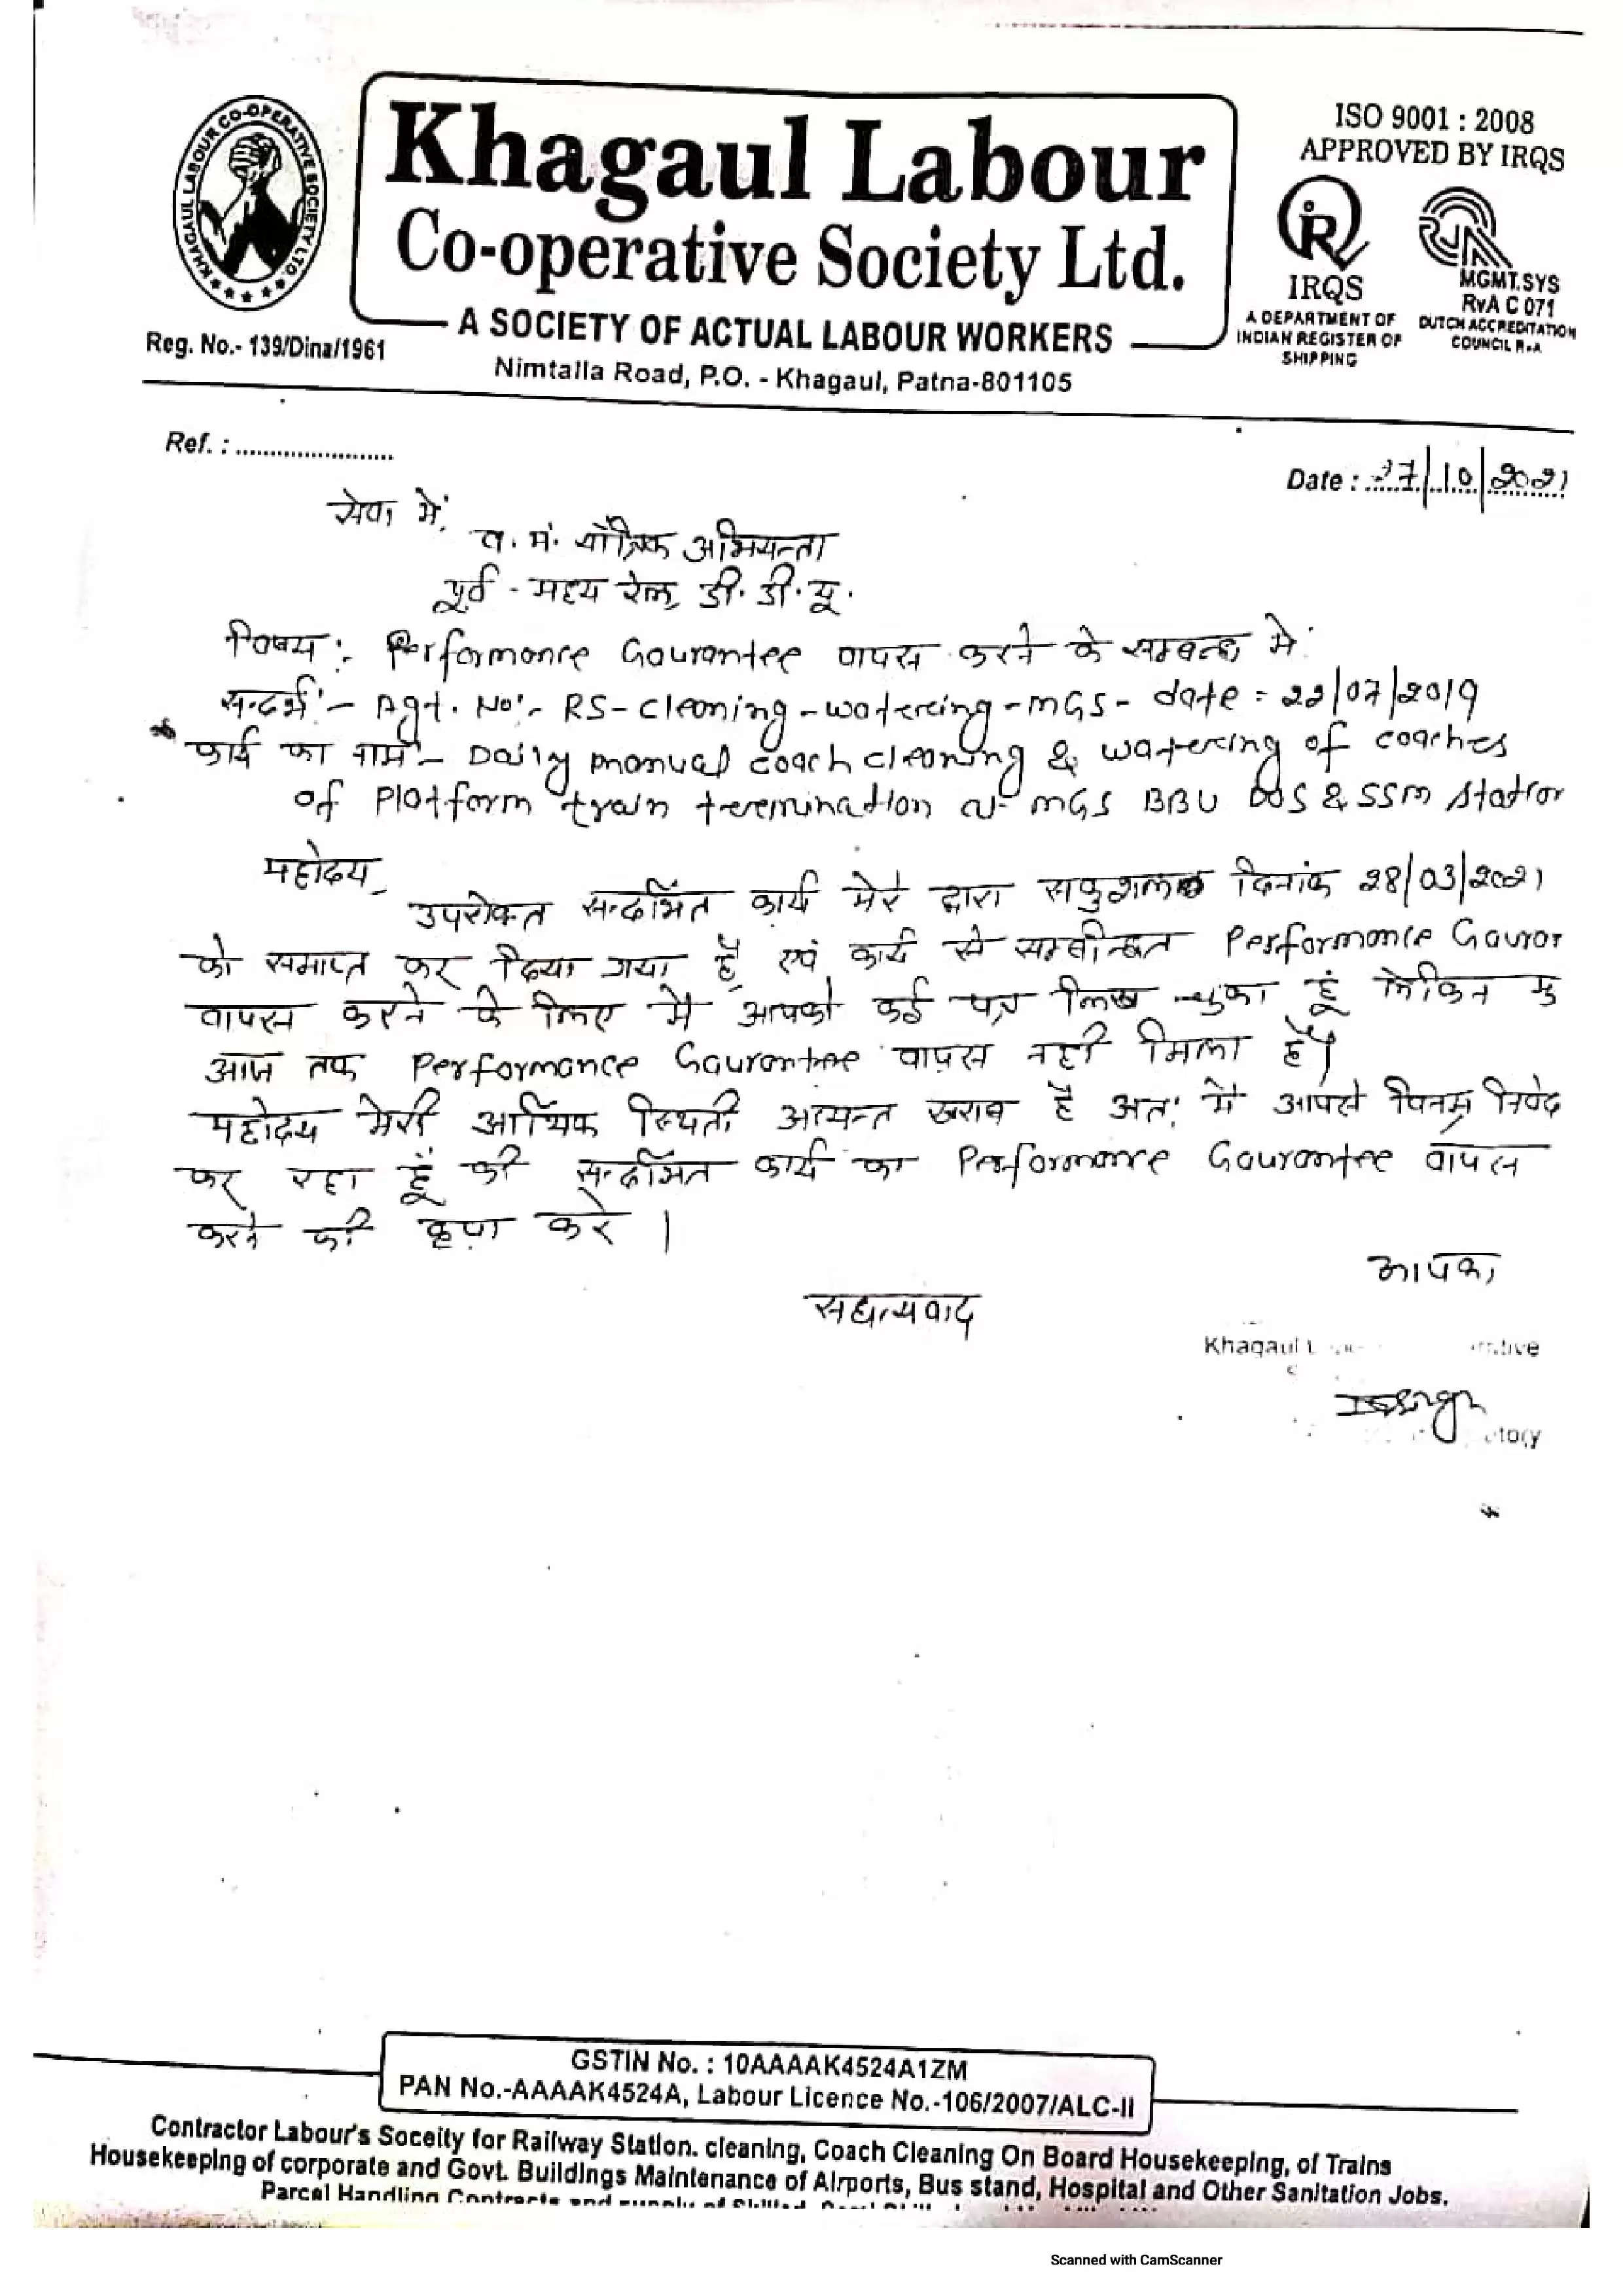 KHAGAUL LABOUR CO-OPERATIVE SOCIETY LTD.
Khagaul Labour
Co-operative Society Ltd.
A SOCIETY OF ACTUAL LABOUR WORKERS
Reg. No.- 139/Dina/1961
Nimtalla Road, P.O. - Khagaul, Patna-801105
ISO 9001 : 2008
APPROVED BY IRQS
IRQS
A DEPARTMENT OF
INDIAN REGISTER OF
SHIPPING
MGMT.SYS
RvA C 071
DUTCH ACCREDITATION
COUNCIL RvA
Ref. : ........................
Date : 27/10/2021
सेवा में,
व. मं. याँत्रिक अभियन्ता
पूर्व - मध्य रेल, डी. डी. यू.
विषय :- Performance Gaurantee वापस करने के सम्बन्ध में
सन्दर्भ :- Agt. No:- RS-cleaning-watering-MGS- date = 22/07/2019
कार्य का नाम :- Daily manual coach cleaning & watering of coaches
of Platform train termination at MGS BBU DOS & SSM Station
महोदय,
उपरोक्त सन्दर्भित कार्य मेरे द्वारा सकुशल दिनांक 28/03/2021
को समाप्त कर दिया गया है, एवं कार्य से सम्बन्धित Performance Gauran
वापस करने के लिए मै आपको कई पत्र लिख चुका हूं लेकिन मु
आज तक Performance Gaurantee वापस नही मिला है।
महोदय मेरी आर्थिक स्थिती अत्यन्त खराब है अतः मे आपसे विनम्र निवेद
कर रहा हूँ की सन्दर्भित कार्य का Performance Gaurantee वापस
करने की कृपा करे ।
आपका
सधन्यवाद
Khagaul
GSTIN No. : 10AAAAK4524A1ZM
PAN No.-AAAAK4524A, Labour Licence No.-106/2007/ALC-II
Contractor Labour's Soceity for Railway Station. cleaning, Coach Cleaning On Board Housekeeping, of Trains
Housekeeping of corporate and Govt. Buildings Maintenance of Airports, Bus stand, Hospital and Other Sanitation Jobs.
Parcel Handling Contracts and supply of Skilled,
Scanned with CamScanner